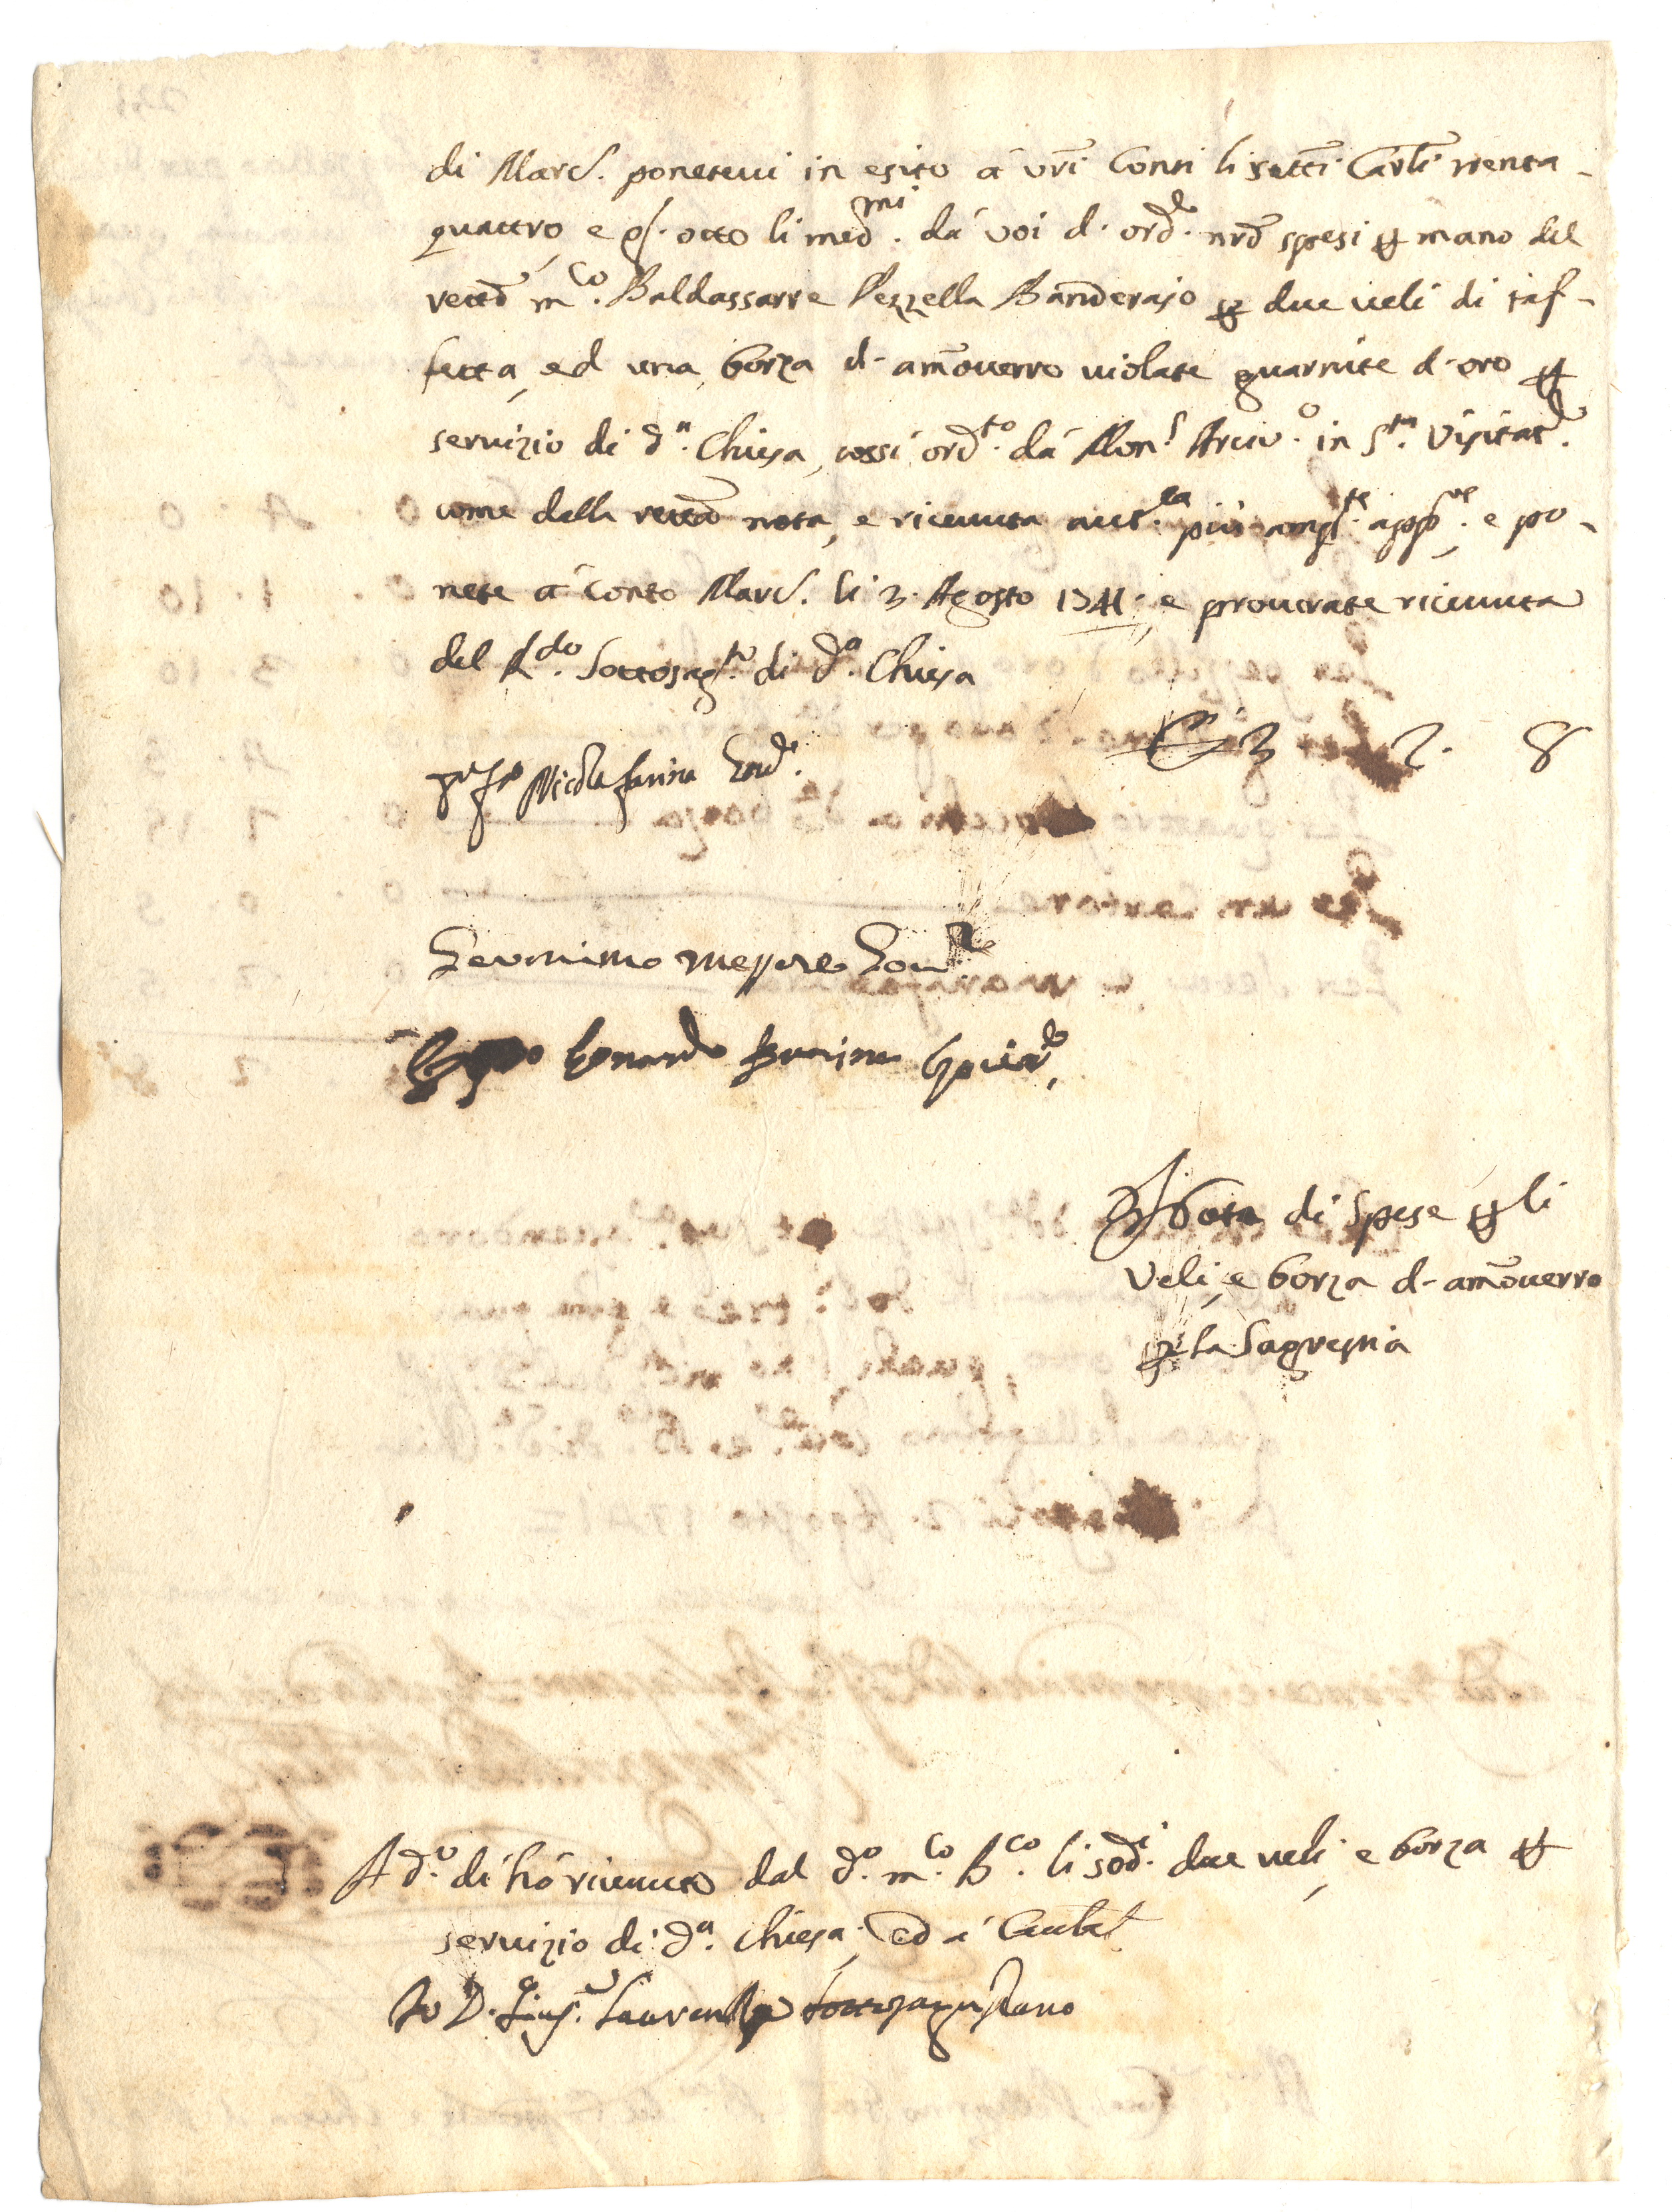 di Marc. ponetevi in esito à vri Conti li retti Carli trenta-
quattro, e gr. otto li med.mi da voi d. ord.e nro spesi p mano del
retto m.co Baldassarre Pezzella Banderajo p due veli di taf-
fetta, ed una borza d. amoverro violate guarnite d. oro p
servizio di d.a Chiesa, cossi ord.to da Mons. Arciv.o in S.ta Visitat.e
come dalla retta nota, e ricevuta aut.ca più amp.te app.re e po-
nete à conto Marc. li 3. Agosto 1741. e procurate ricevuta
del R.do Sottosag.no di d.a Chiesa
3 2. 8
Nicola farina Gov.e
Geronimo messere Gov.re
Lonardo
Nota di spese p li
Veli, e borza d. amoverro
p la Sagrestia
A d.o di hò ricevuto dal d.o m.co B.co li sod.i due veli, e borza p
servizio di d.a Chiesa, ed a Cautel.
Io D. Gius.e Laurenza sottosagristano